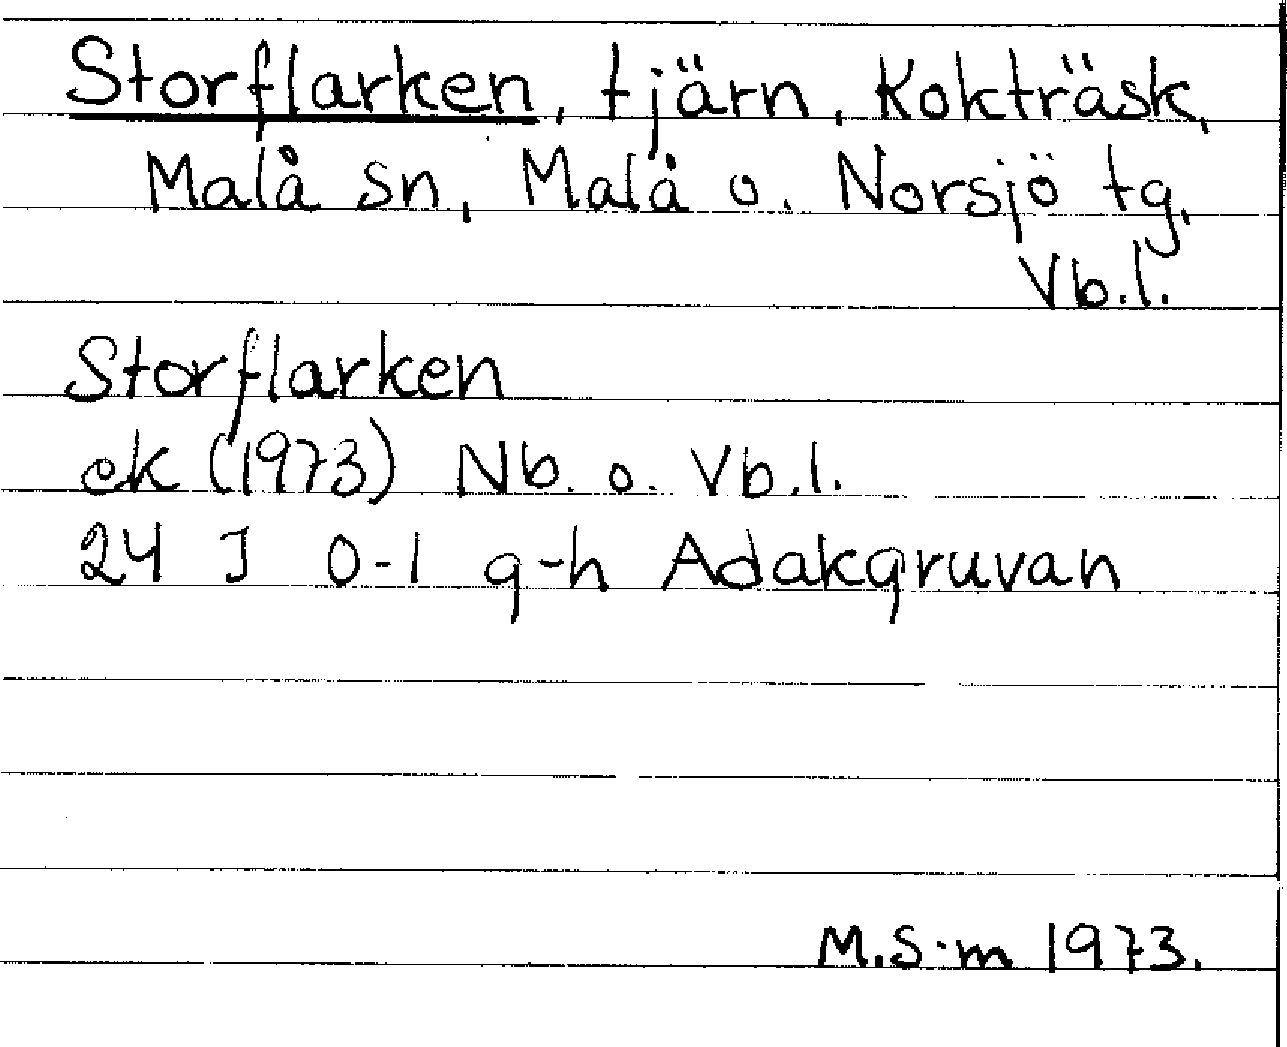 Storflarken, tjärn, Kokträsk,
Malå sn, Malå o. Norsjö tg,
Vb.l.
Storflarken
ek (1973) Nb. o. Vb.l.
24 J 0-1 g-h Adakgruvan
M.S:m 1973.